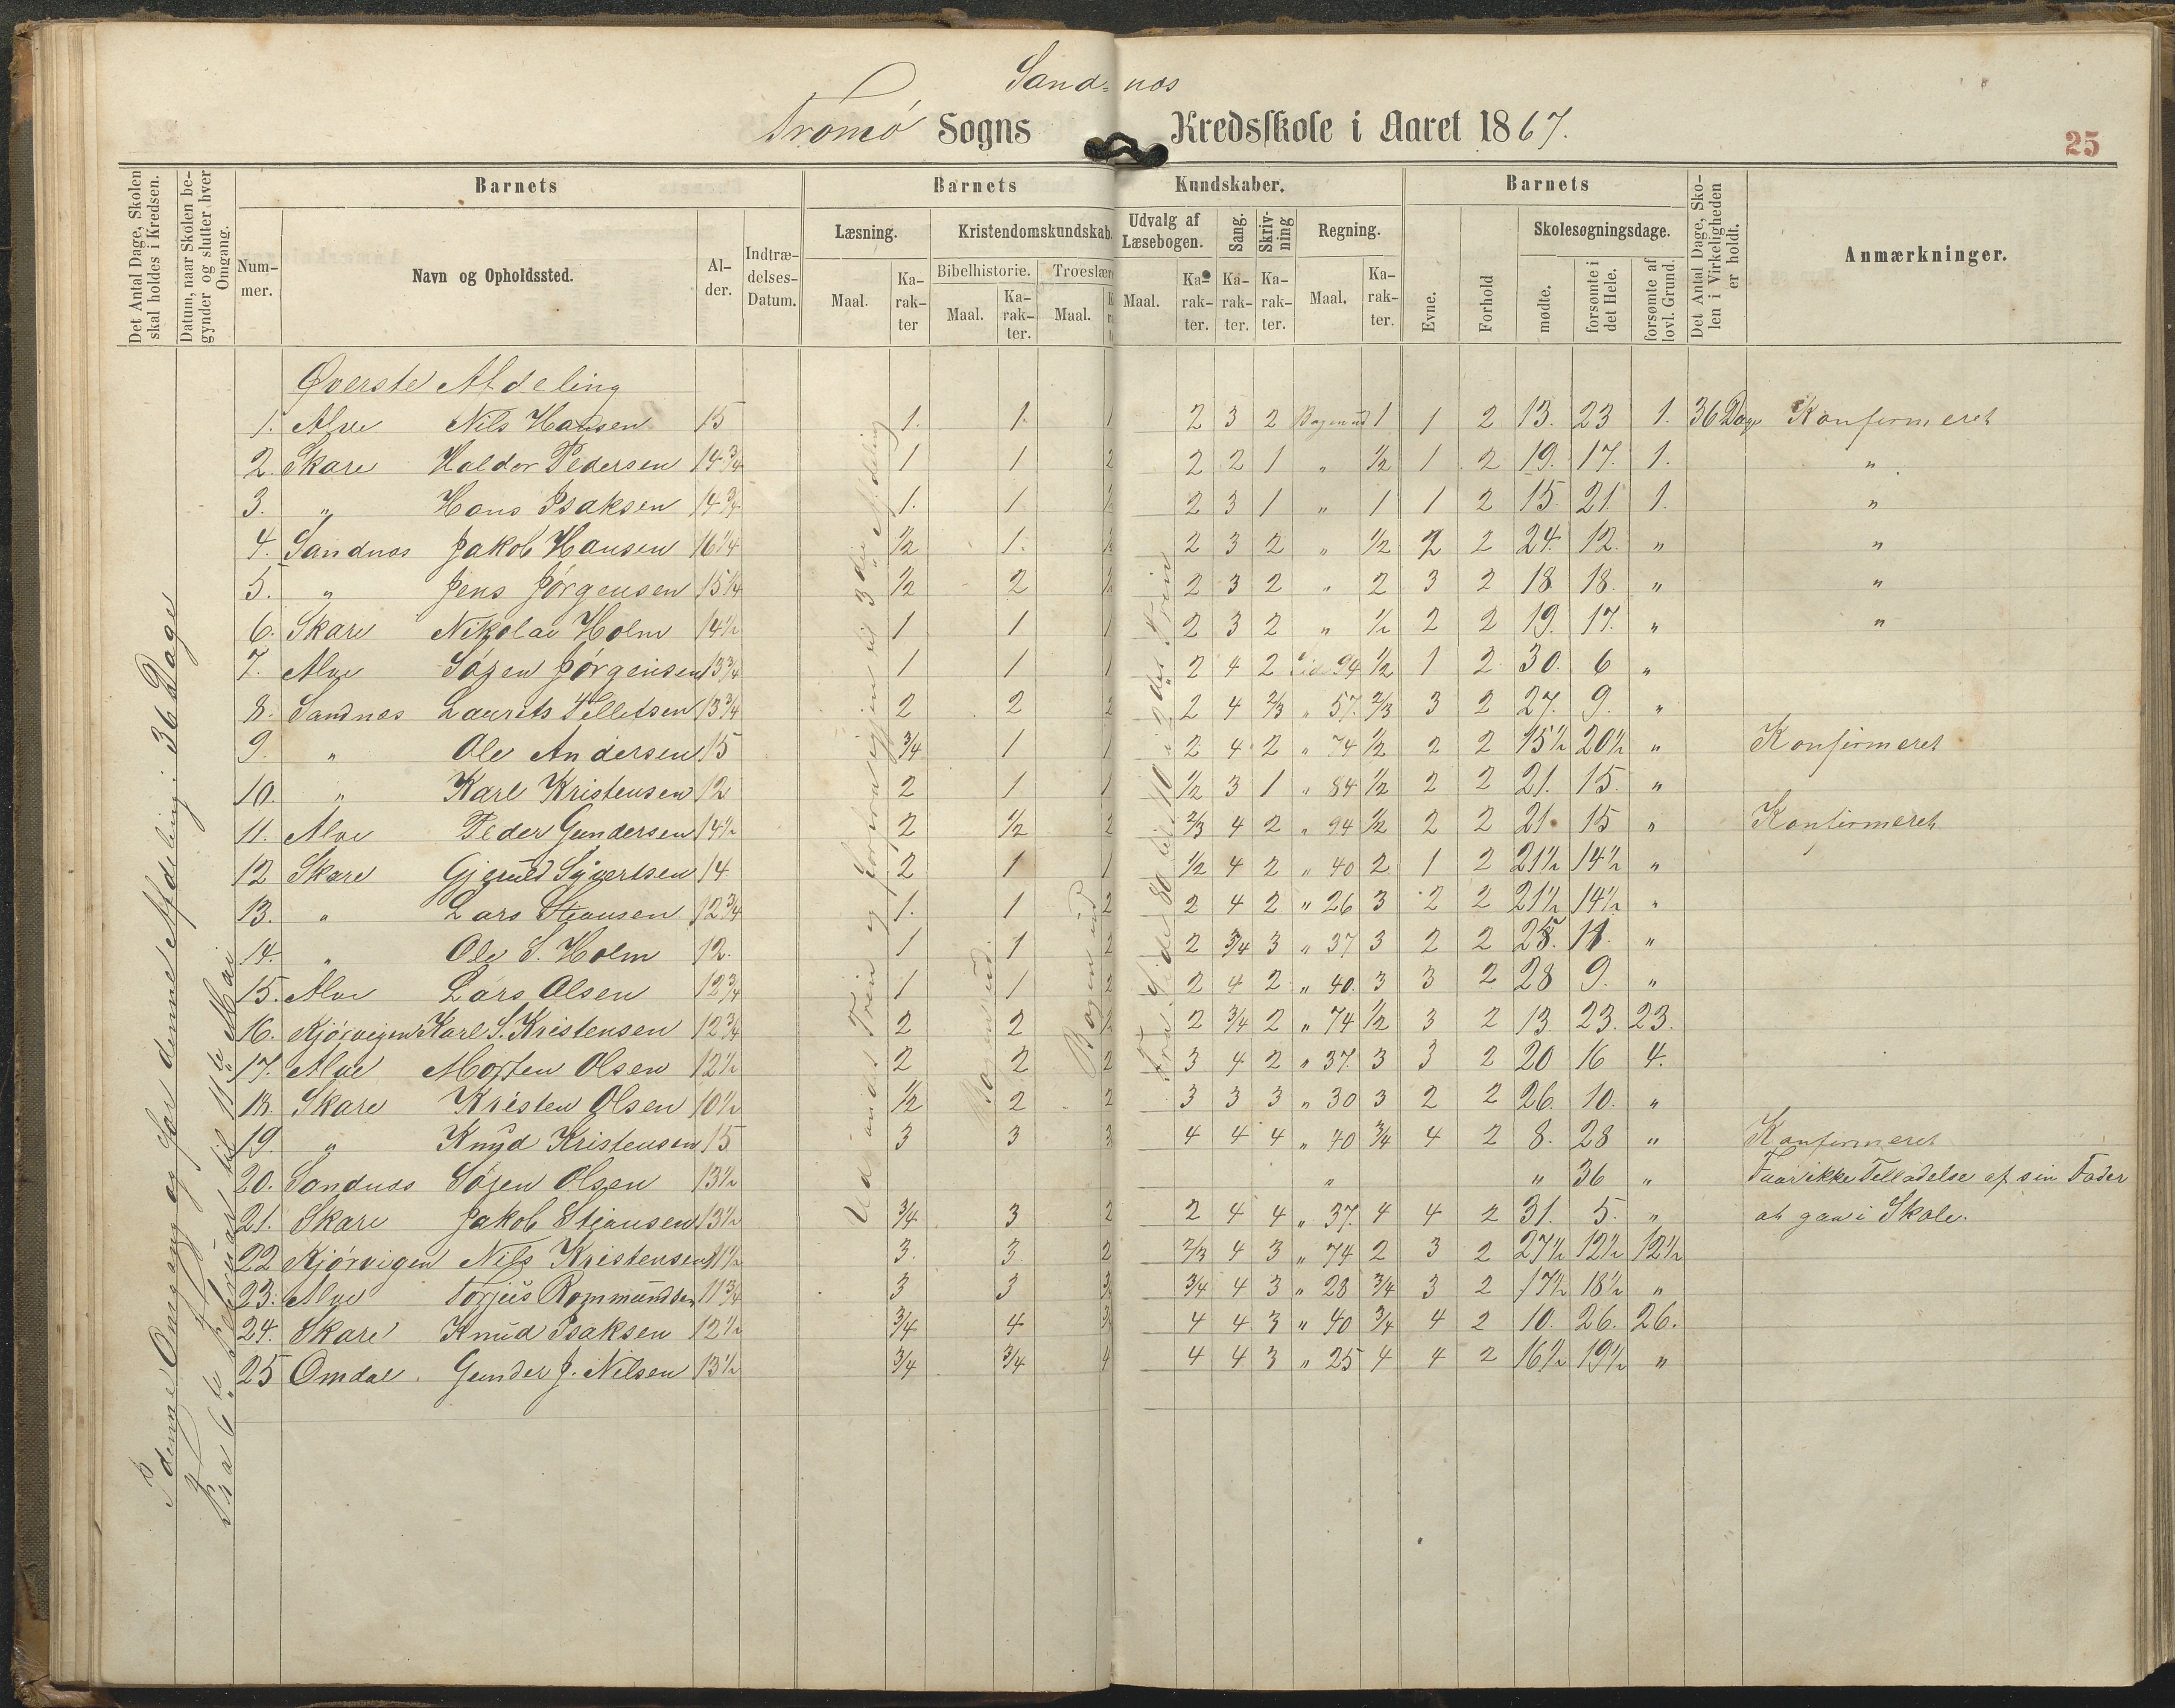 Sandnæs
Tromø Sogns Kredsskole i Aaret 1867.
25
Det Antal Dage, Skolen skal holdes i Kredsen.
Datum, naar Skolen begynder og slutter hver Omgang.
Barnets
Barnets Kundskaber.
Barnets
Det Antal Dage, Skolen i Virkeligheden er holdt.
Anmærkninger.
Nummer.
Navn og Opholdssted.
Alder.
Indtrædelses-Datum.
Læsning.
Kristendomskundskab.
Udvalg af Læsebogen.
Sang.
Skrivning
Regning.
Evne.
Forhold
Skolesøgningsdage.
Bibelhistorie.
Troeslære
Maal. Karakter
Maal. Karakter.
Maal.
Maal. Karakter.
Karakter. Karakter.
Maal. Karakter.
mødte.
forsømte i det Hele.
forsømte af lovl. Grund.
I denne Omgang og for denne Afdeling: 36 Dage
Fra 6te Februar til 11te Mai
Øverste Afdeling
1. Alve Nils Hansen 15 1. 1. 1 2 3 2 Bogen ud 1 1 2 13. 23 1. 36 Dage Konfirmeret
2. Skare Haldor Pedersen 14 3/4 1 1 2 2 2 1 " 1/2 1 2 19. 17. 1. "
3. " Hans Isaksen 14 3/4 1. 1 1/2 2 3 1 " 1 1 2 15. 21. 1. "
4. Sandnæs Jakob Hansen 16 1/4 1/2 1. 1/2 2 3 2 " 1/2 2 2 24. 12. " "
5. " Jens Jörgensen 15 1/4 1/2 2 1/2 2 3 2 " 2 3 2 18 18. " "
6. Skare Nikolai Holm 14 1/2 1 1 1 2 3 2 " 1/2 2 2 19. 17. " "
7. Alve Sören Jörgensen 13 3/4 1 1 1 2 4 2 Side 94 1/2 1 2 30. 6 "
8. Sandnæs Laurits Tellefsen 13 3/4 2 2 2 2 4 2/3 " 57. 2/3 3 2 27. 9. "
9. " Ole Andersen 15 3/4 1 1 2 4 2 " 74 1/2 2 2 15 1/2 20 1/2 " Konfirmeret
10. " Karl Kristensen 12 2 1 1 1/2 3 1 " 84 1/2 2 2 21. 15. "
11. Alve Peder Gundersen 14 1/2 2 1/2 2 2/3 4 2 " 94 1/2 2 2 21 15 " Konfirmeret
12 Skare Gjeruld Sivertsen 14 2 1 1 1/2 4 2 " 40 2 1 2 21 1/2 14 1/2 "
13. " Lars Stiansen 12 3/4 1. 1 2 2 4 2 " 26 3 2 2 21 1/2 14 1/2 "
14. " Ole S. Holm 12. 1 1 2 2 3/4 3 " 37 3 2 2 25. 11. "
15. Alve Lars Olsen 12 3/4 1 1 2 2 4 2 " 40. 3 3 2 28 9. "
16. Kjörvigen Karl S. Kristensen 12 3/4 2 2 1/2 2 3/4 2 " 74 1/2 3 2 13 23. 23.
17. Alve Morten Olsen 12 1/2 2 2 2 3 4 2 " 37. 3 3 2 20 16 4.
18. Skare Kristen Olsen 10 1/2 1/2 2 2 3 3 3 " 30 3 2 2 26. 10. "
19. " Knud Kristensen 15 3 3 3 4 4 4 " 40 3/4 4 2 8. 28 " Konfirmeret
20. Sandnæs Sören Olsen 13 1/2 " " 36 " Faar ikke Tilladelse af sin Fader
21. Skare Jakob Stiansen 13 1/2 3/4 3 2 2 4 4 " 37. 4 4 2 31. 5. " at gaa i Skole.
22 Kjörvigen Nils Kristensen 11 1/2 3. 3 2 2/3 4 3 " 74 2 3 2 27 1/2 12 1/2 12 1/2
23. Alve Torjus Rommundsen 11 3/4 3 3 3/4 3/4 4 3 " 28 3/4 3 2 17 1/2 18 1/2 "
24. Skare Knud Isaksen 12 1/2 3/4 4 3/4 4 4 3 " 40 3/4 4 2 10. 26. 26.
25 Omdal. Gunder J. Nilsen 13 1/2 3/4 3/4 4 4 4 3 " 25 4 4 2 16 1/2 19 1/2 "
Bogen ud.
Bogen ud
Fra Side 80 til 110 i 2det Trin